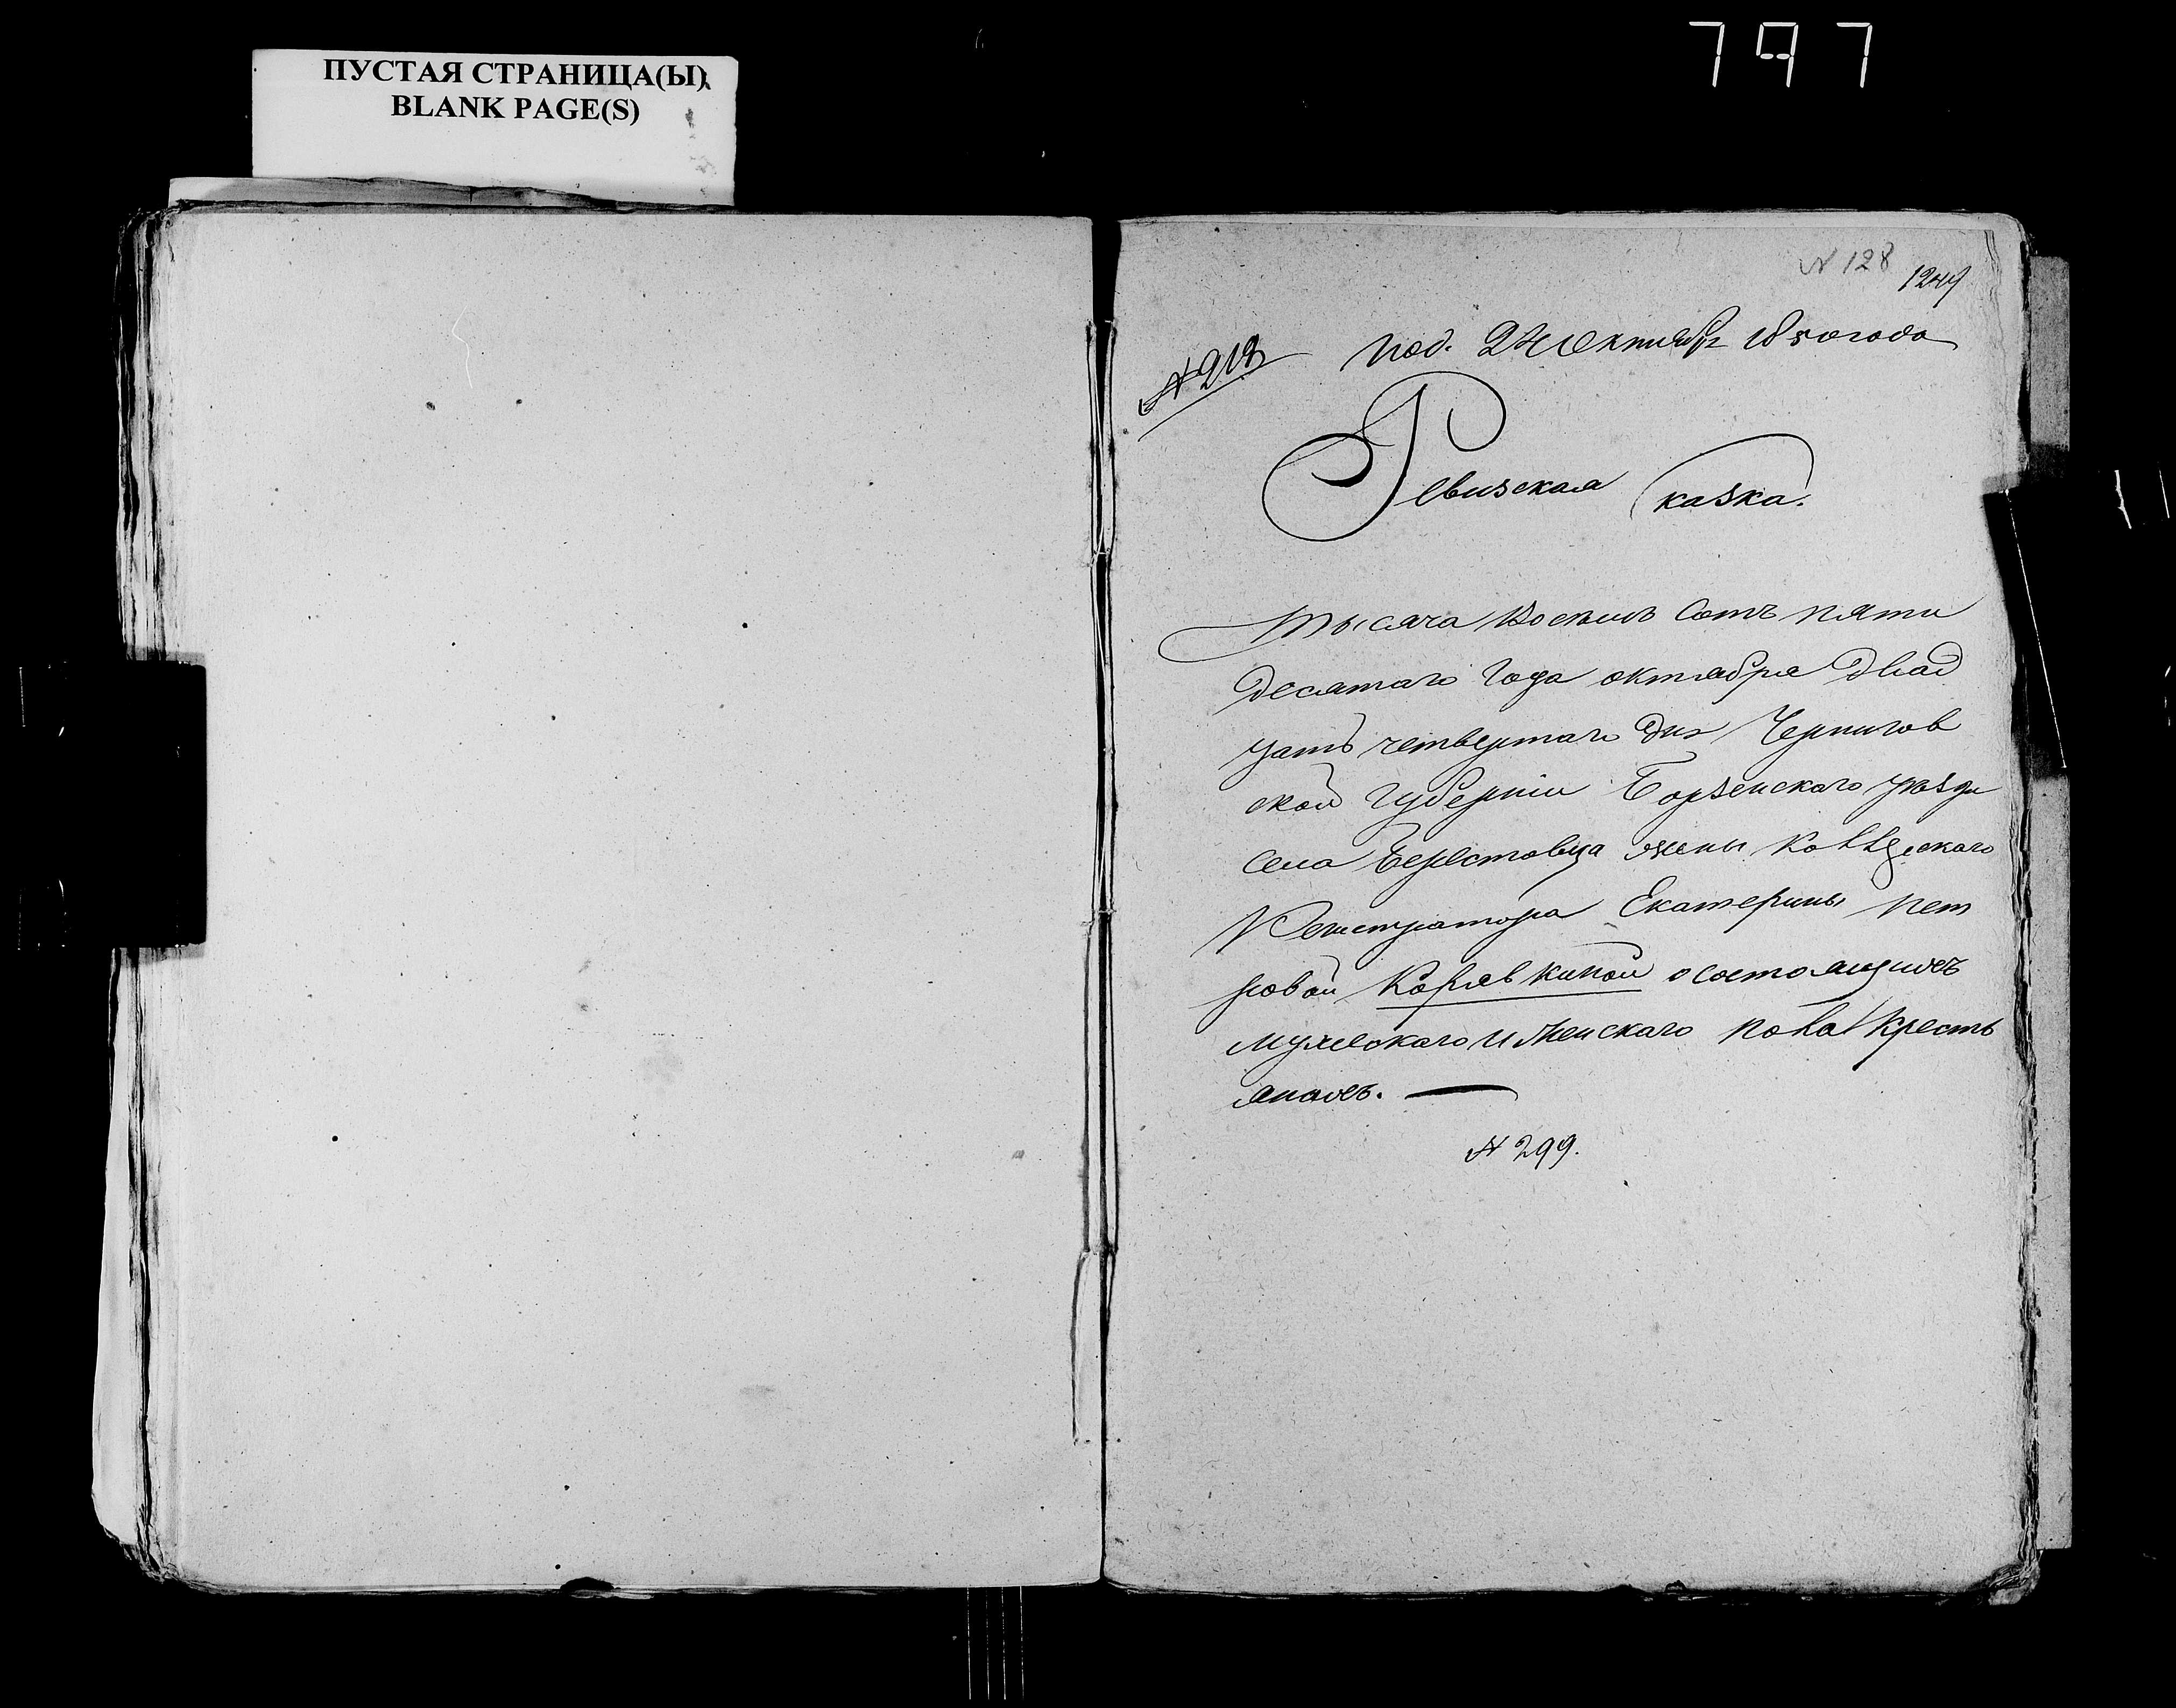 797
ПУСТАЯ СТРАНИЦА(Ы)
BLANK PAGE(S)
N 128
1249
N 213
Под. 24 Октября 1850 года
Ревизская Сказка.
Тысяча Восемь Сотъ пяти
десятаго Года октября двад
цать четвертаго дня Чернигов
ской Губерніи Борзенского уѣзда
села Берестовца жены Коллежского
Регистратора Екатерины Пет
ровой Корявкиной о состоящихъ
мужеского и Женского пола Кресть
янахъ.
N 299.